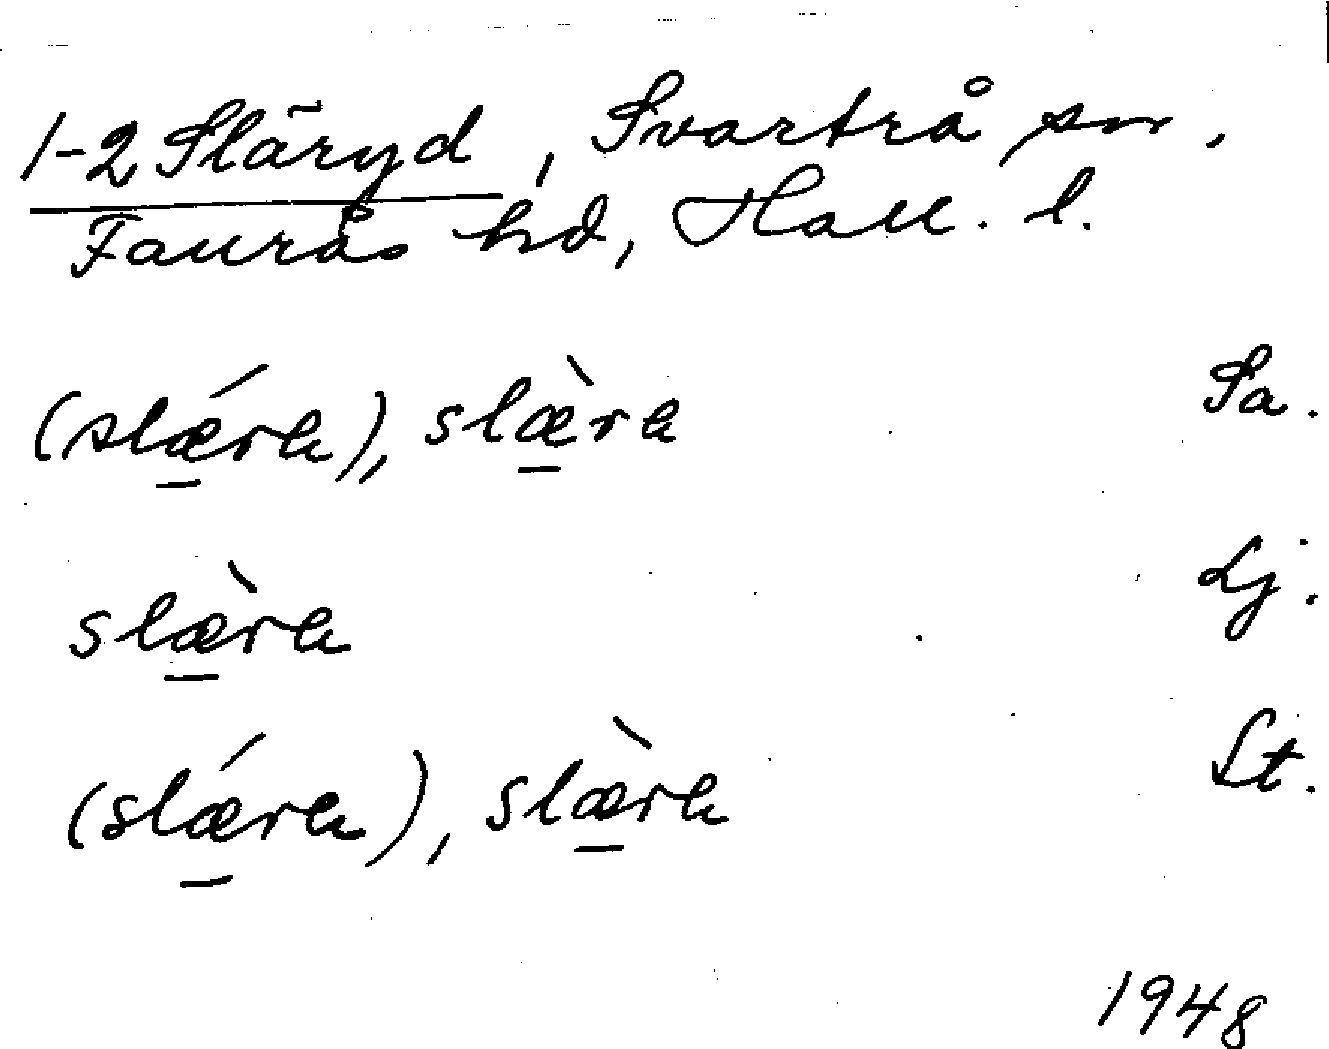 1-2 Släryd, Svartrå sn.
Faurås hd, Hall. l.
(slǽ̱ra), slæ̱̀ra Sa.
slæ̱̀ra Lj.
(slǽ̱ra), slæ̱̀ra St.
1948